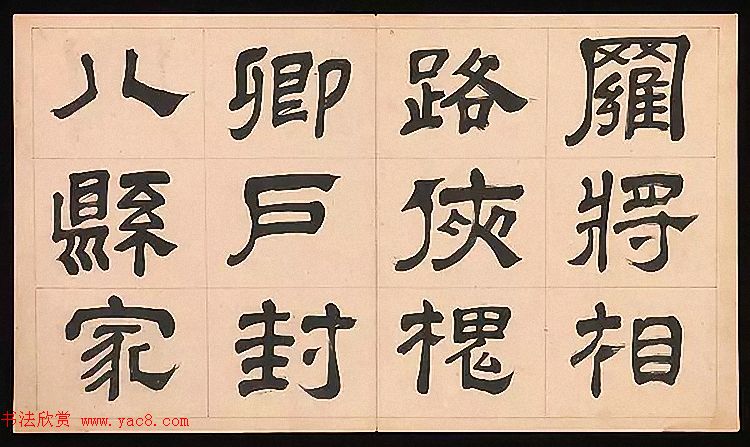 羅將相
路俠槐
卿戶封
八縣家
书法欣赏 www.yac8.com